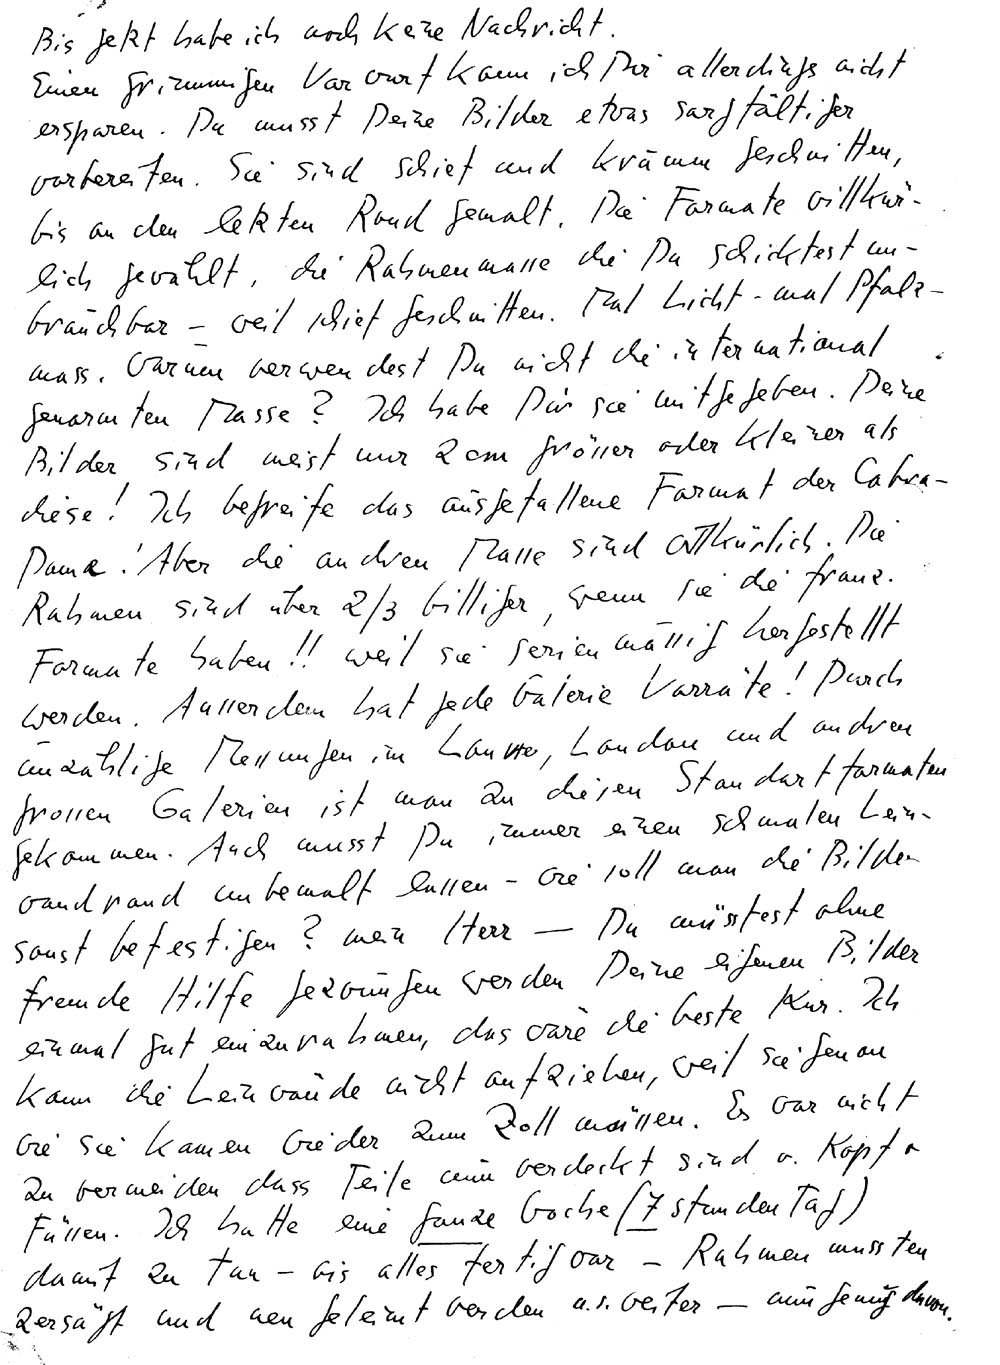 Bis jetzt habe ich noch keine Nachricht.
Einen grimmigen Vorwurf kann ich Dir allerdings nicht
ersparen. Du musst Deine Bilder etwas sorgfältiger
vorbereiten. Sie sind schief und krumm geschnitten,
bis an den letzten Rand gemalt. Die Formate willkür-
lich gewählt, die Rahmenmasse die Du schicktest un-
brauchbar – weil schief geschnitten. Mal Licht - mal Pfalz-
mass. Warum verwendest Du nicht die international
genormten Masse? Ich habe Dir sie mitgegeben. Deine
Bilder sind meist nur 2 cm grösser oder kleiner als
diese! Ich begreife das ausgefallene Format der Cobra-
Dame! Aber die andren Masse sind willkürlich. Die
Rahmen sind über 2/3 billiger, wenn sie die franz.
Formate haben!! weil sie serienmässig hergestellt
werden. Ausserdem hat jede Galerie Vorräte! Durch
unzählige Messungen im Louvre, London und andren
grossen Galerien ist man zu diesen Standartformaten
gekommen. Auch musst Du immer einen schmalen Lein-
wandrand unbemalt lassen – wie soll man die Bilder
sonst befestigen? mein Herr — Du müsstest ohne
fremde Hilfe gezwungen werden Deine eigenen Bilder
einmal gut einzurahmen, das wäre die beste Kur. Ich
kann die Leinwände nicht aufziehen, weil sie genau
wie sie kamen wieder zum Zoll müssen. Es war nicht
zu vermeiden dass Teile nun verdeckt sind v. Kopf u
Füssen. Ich hatte eine ganze Woche (7 stunden Tag)
damit zu tun – bis alles fertig war – Rahmen mussten
zersägt und neu geleimt werden u.s.weiter — nun genug davon.